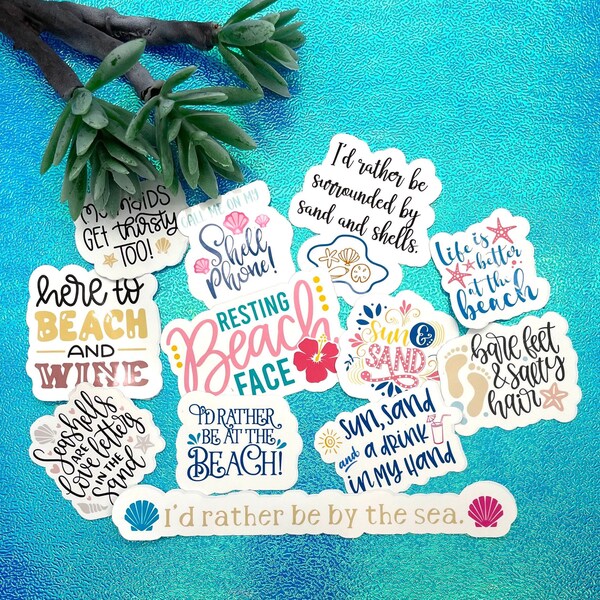 MERMAIDS
GET thirsty
TOO!
CALL ME ON MY
Shell
Phone!
I'd rather be
surrounded by
sand and shells.
life is
better
at the
beach
here to
BEACH
AND
WINE
RESTING
Beach
FACE
Sun &
SAND
bare feet
& salty
hair
Seashells
ARE
love letters
IN THE
Sand
I'D RATHER
BE AT THE
BEACH!
Sun, Sand
and a drink
in my hand
I'd rather be by the sea.